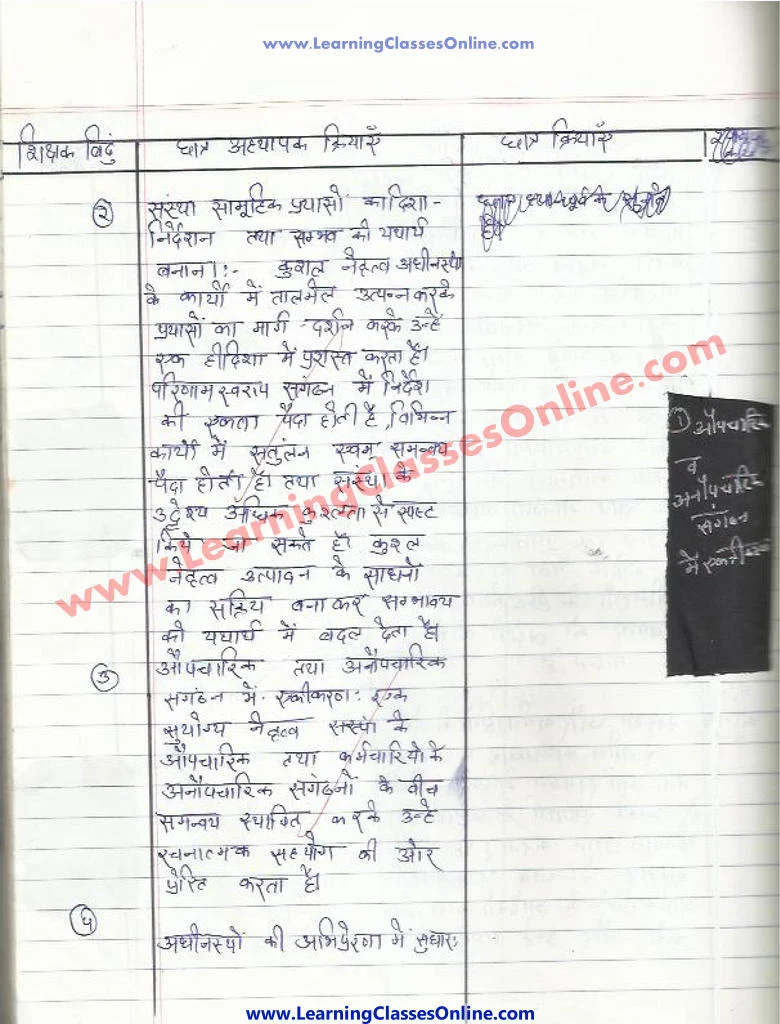 www.LearningClassesOnline.com
शिक्षक बिदुं छात्र अध्यापक क्रियाएँ छात्र क्रियाएँ
② संस्था सामूहिक प्रयासों का दिशा-
निर्देशन तथा सम्भव को यथार्थ
बनाना:- कुशल नेतृत्व अधीनस्थों
के कार्यों में तालमेल उत्पन्न करके
प्रयासों का मार्ग-दर्शन करके उन्हें
एक ही दिशा में प्रशस्त करता है।
परिणाम स्वरूप संगठन में निर्देश
की एकता पैदा होती है, विभिन्न
कार्यों में सतुंलन एवम् समन्वय
पैदा होता है। तथा संस्था के
उद्देश्य अधिक कुशलता से स्पष्ट
किये जा सकते है। कुशल
नेतृत्व उत्पादन के साधनों
का सक्रिय बनाकर सम्भाव्य
को यथार्थ में बदल देता है।
③ औपचारिक तथा अनौपचारिक
सगंठन में एकीकरण: एक
सुयोग्य नेतृत्व सस्था के
औपचारिक तथा कर्मचारियो के
अनौपचारिक सगंठनों के बीच
समन्वय स्थापित करके उन्हे
रचनात्मक सहयोग की ओर
प्रेरित करता है।
अधीनस्थों की अभिप्रेरणा में सुधार:
① औपचारिक
व
अनौपचारिक
संगठन
में
www.LearningClassesOnline.com
www.LearningClassesOnline.com